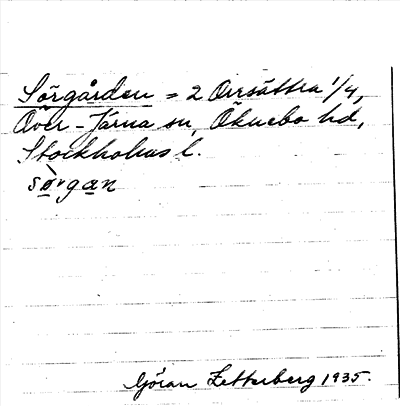 Sörgården = 2 Orrsättra 1/4,
Över-Järna sn, Öknebo hd,
Stockholms l.
sörgan
Göran Zetterberg 1935.